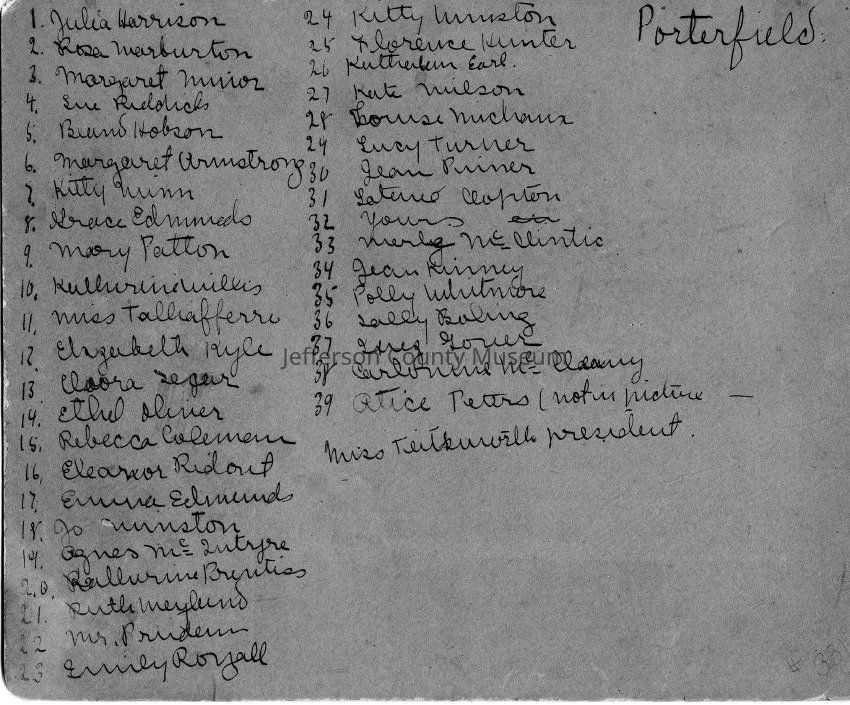 Porterfield.
1. Julia Harrison
2. Rosa Warburton
3. Margaret Minor
4. Sue Riddick
5. Hobson
6. Margaret Armstrong
7. Kitty Nunn
8. Grace Edmunds
9. Mary Patton
10. Willis
11. Miss Talliafferre
12. Elizabeth Kyle
13. Cloora Segar
14. Ethel Oliver
15. Rebecca Coleman
16. Eleanor Ridout
17. Emma Edmunds
18. Jo Winston
19. Agnes Mc Intyre
20. Katherine
21. Ruth
22 Mr. Pruden
23 Emily Royall
24 Kitty Winston
25 Florence Hunter
26 Earl.
27 Kate Wilson
28 Louise Michaux
29 Lucy Turner
30 Jean
31 Clopton
32 Yours
33 Mc Clintic
34 Jean Kinney
35 Polly Whitmore
36 Sally Boling
37
38 Mc
39 Alice Peters (not in picture —
Miss president.
Jefferson County Museum
33